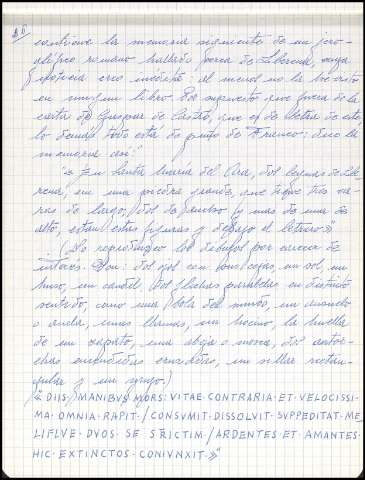 contiene la memoria siguiente de un jero-
glífico romano hallado cerca de Llerena, cuya
noticia creo inédita: al menos no la he visto
en ningún libro. Por supuesto que fuera de la
carta de Gaspar de Castro, que es de letra de éste,
lo demás todo está de puño de Franco: dice la
memoria así:
"En Santa María del Ara, dos leguas de Lle-
rena, en una piedra grande, que tiene tres va-
ras de largo, dos de grueso y más de una de
alto, están estas figuras y debajo el letrero"
(No reproduzco los dibujos por carecer de
interés. Son: dos ojos con sus cejas, un sol, un
huso, un candil. Dos flechas paralelas en distinto
sentido, como una bola del mundo, un
o rueda, unas llamas, un hocino, la huella
de un zapato, una abeja o mosca, dos antor-
chas encendidas cruzadas, un sillar rectan-
gular y un yugo.)
"DIIS. MANIBUS MORS. VITAE CONTRARIA ET. VELOCISSI-
MA OMNIA RAPIT./CONSVMIT. DISSOLVIT. SVPPEDITAT. ME-
LIFLVE. DVOS. SE. STRICTIM./ARDENTES. ET. AMANTES.
HIC. EXTINCTOS. CONIVNXIT."